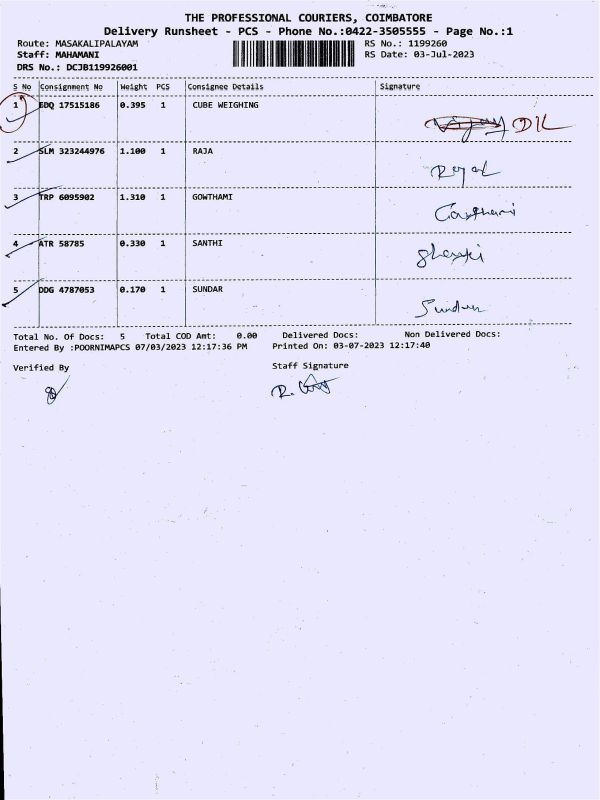 THE PROFESSIONAL COURIERS, COIMBATORE
Delivery Runsheet - PCS - Phone No.:0422-3505555 - Page No.:1
Route: MASAKALIPALAYAM RS No.: 1199260
Staff: MAHAMANI RS Date: 03-Jul-2023
DRS No.: DCJB119926001
S No Consignment No Weight PCS Consignee Details Signature
1 EDQ 17515186 0.395 1 CUBE WEIGHING
DIL
2 SLM 323244976 1.100 1 RAJA
3 TRP 6095902 1.310 1 GOWTHAMI
Gowthami
4 ATR 58785 0.330 1 SANTHI
5 DDG 4787053 0.170 1 SUNDAR
Sundar
Total No. Of Docs: 5 Total COD Amt: 0.00 Delivered Docs: Non Delivered Docs:
Entered By :POORNIMAPCS 07/03/2023 12:17:36 PM Printed On: 03-07-2023 12:17:40
Verified By Staff Signature